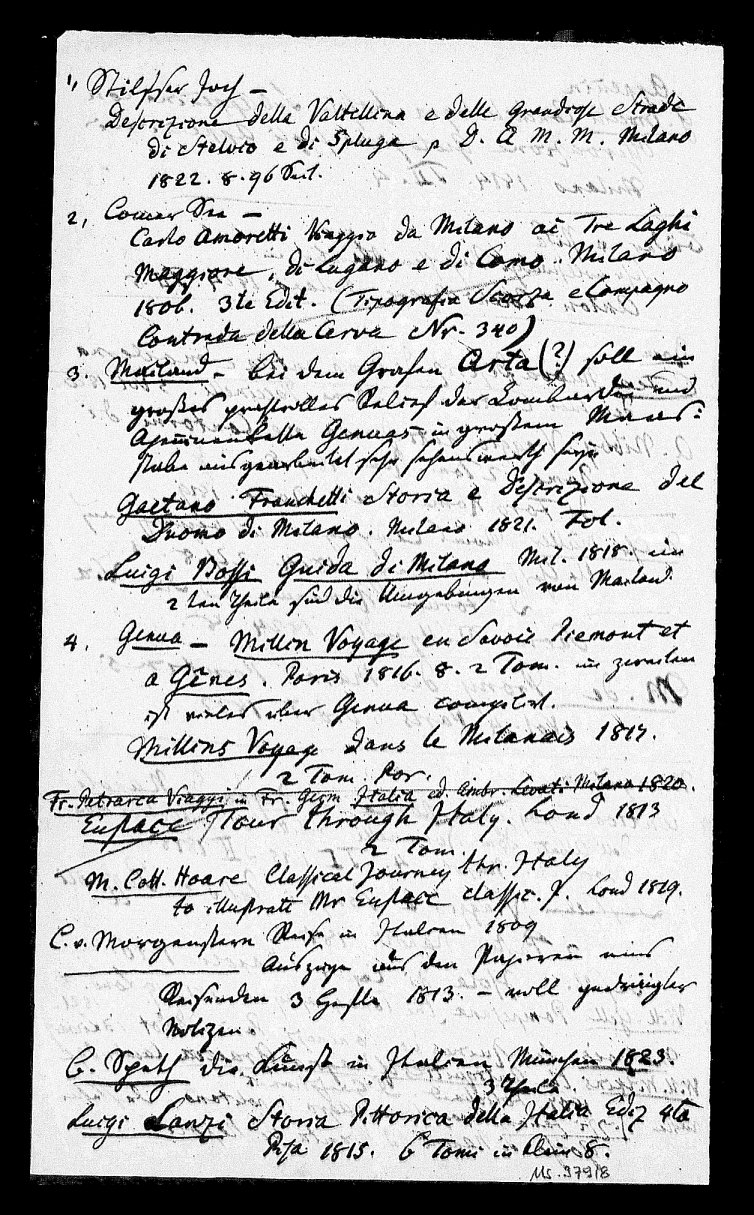 1, Stilfser Joch –
Descrizione della Valtellina e delle grandiose Strade
di Stelvio e di Spluga p D. A M. M. Milano
1822. 8. 96 Seit.
2, Comer See –
Carlo Amoretti Viaggio da Milano ai Tre Laghi
Maggiore, di Lugano e di Como. Milano
1806. 3te Edit. (Tipografia Scorza e Compagno
Contrada della Cerva Nr. 340)
3. Mailand – bei dem Grafen Arta (?) soll ein
großes prachtvolles Relief der Lombardei und
Apenninenkette Genuas in großem Maas:
stabe ausgearbeitet sehr sehenswerth seyn
Gaetano Franchetti Storia e Descrizione del
Duomo di Milano. Milano 1821. Fol.
Luigi Bossi Guida di Milano Mil. 1818. im
2ten Theile sind die Umgebungen von Mailand.
4. Genua – Millin Voyage en Savoie Piemont et
a Gênes. Paris 1816. 8. 2 Tom. im zweiten
ist vieles über Genua compilirt.
Millins Voyage dans le Milanais 1817.
2 Tom. Par.
Fr. Petrarca Viaggi in Fr. Germ Italia ed. Ambr. Levati Milano 1820.
Eustace Tour through Italy. Lond 1813
2 Tom.
M. Colt. Hoare Classical Journey thr. Italy
to illustrate Mr Eustace classic. J. Lond 1819.
C. v. Morgenstern Reise in Italien 1809
Auszüge aus den Papieren eines
Reisenden 3 Hefte 1813. – voll gedrängter
Notizen.
B. Speth die Kunst in Italien München 1823.
3 Theile
Luigi Lanzi Storia Pittorica della Italia Ediz 4ta
Pisa 1815. 6 Tomi in klein 8.
Ms. 379/8